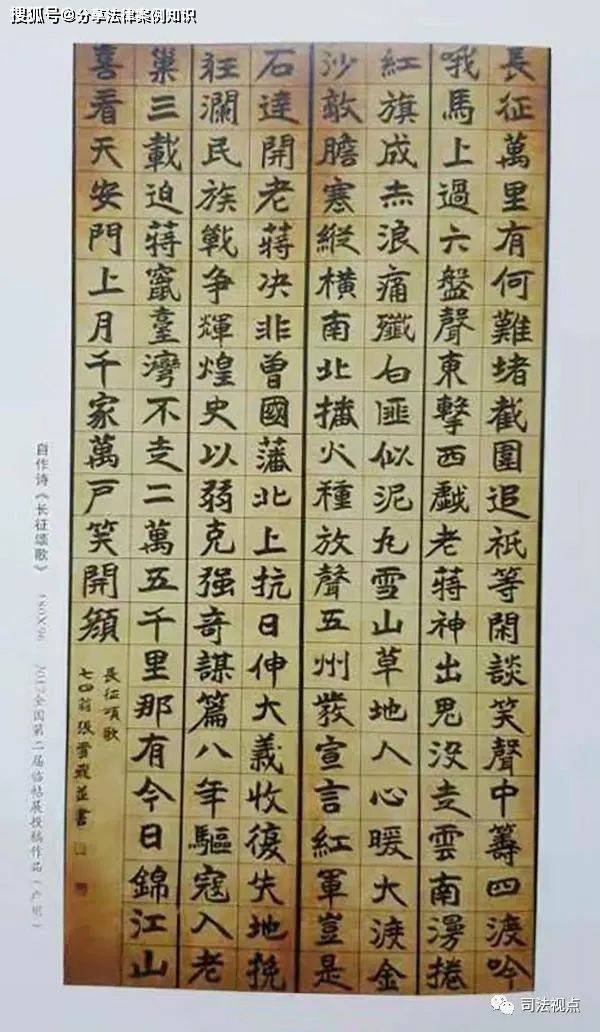 搜狐号@分享法律案例知识
長征萬里有何難堵截圍追祇等閑談笑聲中籌四渡吟
哦馬上過六盤聲東擊西戲老蔣神出鬼没走雲南漫捲
紅旗成赤浪痛殲白匪似泥丸雪山草地人心暖大渡金
沙敢膽寒縱横南北播火種放聲五州發宣言紅軍豈是
石達開老蔣决非曾國藩北上抗日伸大義收復失地挽
狂瀾民族戰争輝煌史以弱克强奇謀篇八年驅寇入老
巢三載迫蔣竄臺灣不走二萬五千里那有今日錦江山
喜看天安門上月千家萬戸笑開顔
長征頌歌
七四翁張雪並書
自作诗《长征颂歌》 全国第二届临帖展投稿作品（广州）
司法视点